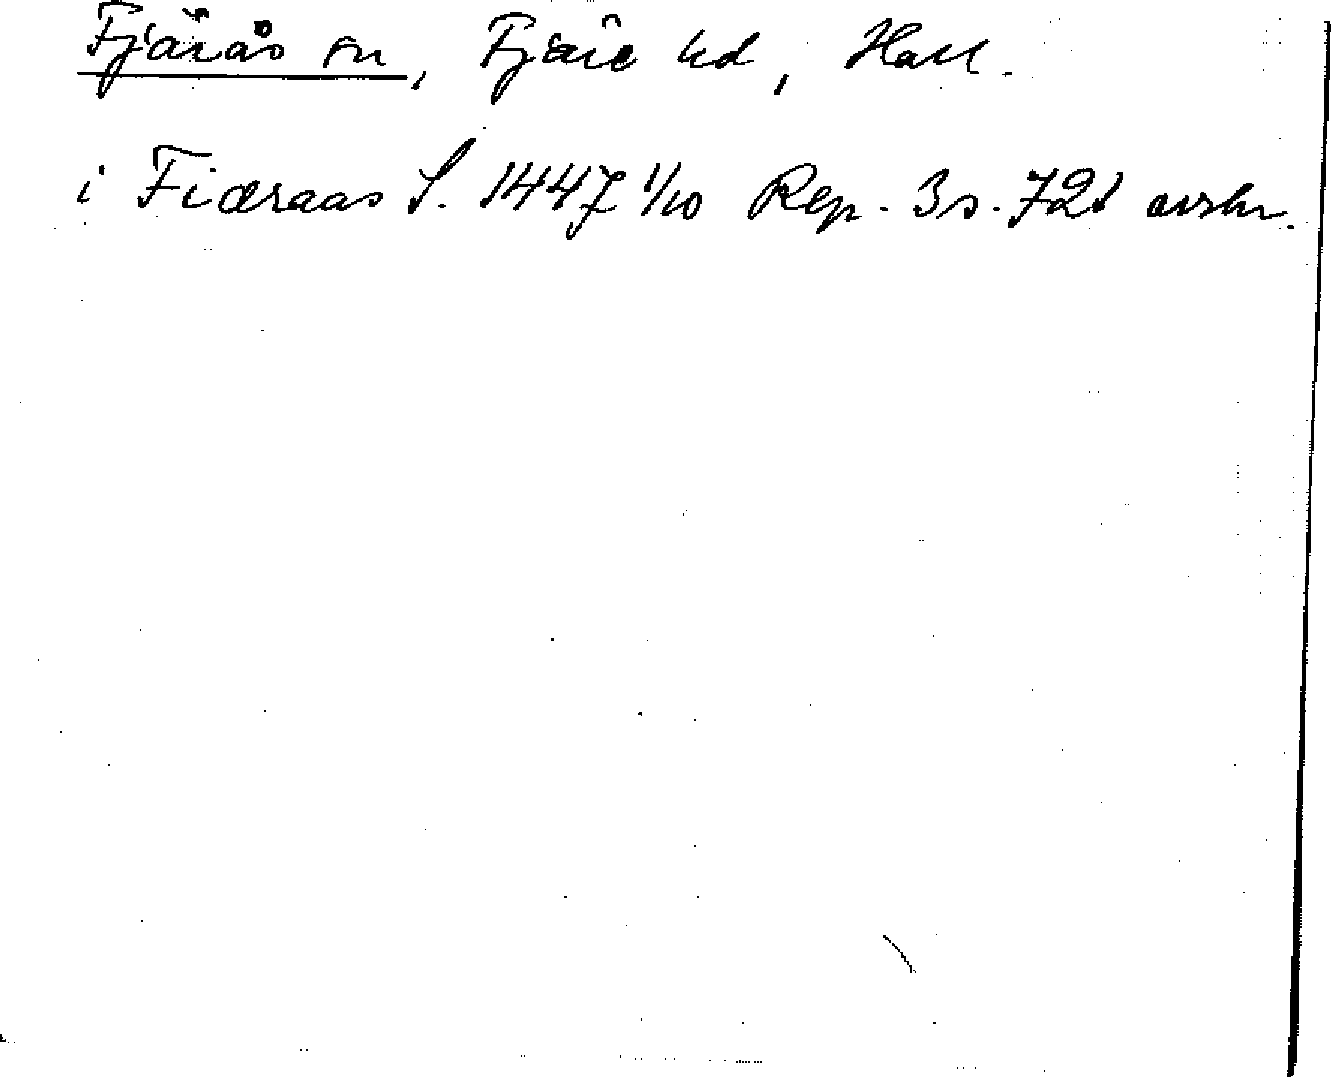 Fjärås sn, Fjäre hd, Hall.
i Fiæraas S. 1447 1/10 Rep. 3 s. 721 avskr.